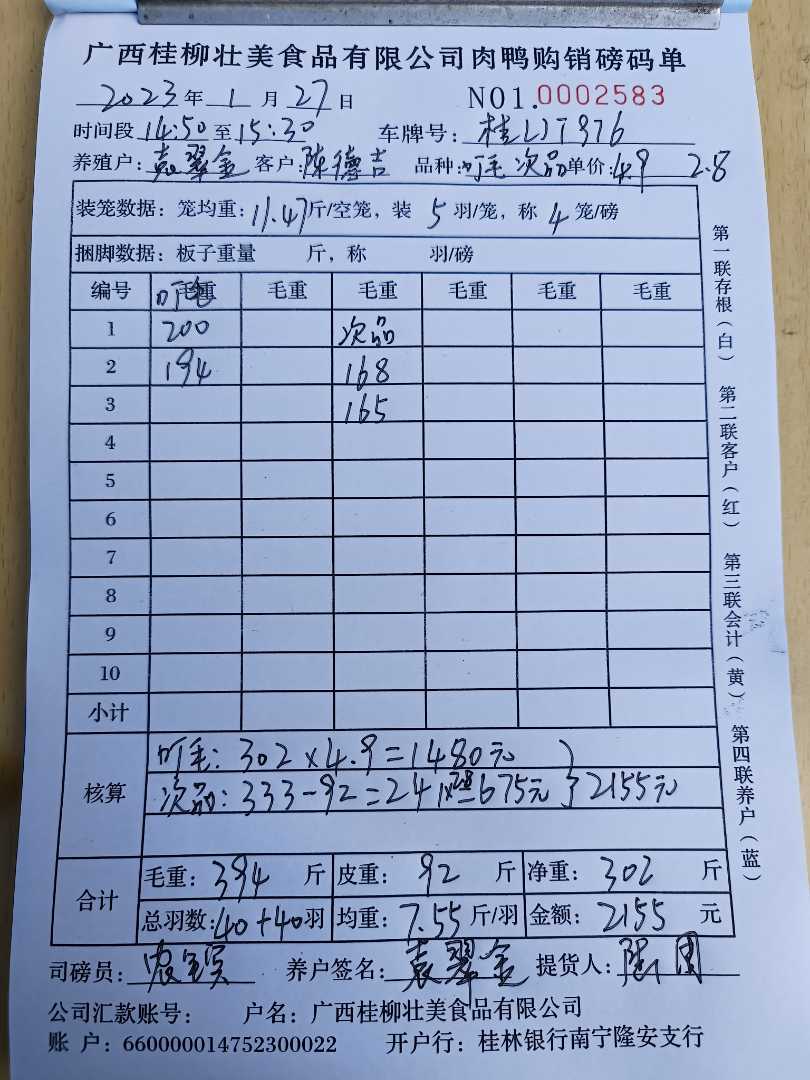 广西桂柳壮美食品有限公司肉鸭购销磅码单
2023年 1月27日 NO1.0002583
时间段 14:50 至 15:30 车牌号:
养殖户: 袁翠金 客户: 陈德吉 品种: 叮毛 次品 单价: 4.9 2.8
装笼数据: 笼均重: 11.47 斤/空笼, 装 5 羽/笼, 称 4 笼/磅
捆脚数据: 板子重量 斤, 称 羽/磅
编号 叮毛 毛重 毛重 毛重 毛重 毛重 毛重
1 200 次品
2 194 168
3 165
4
5
6
7
8
9
10
小计
核算
叮毛: 302×4.9=1480元
次品: 333-92=241×2.8=675元 } 2155元
合计
毛重: 394 斤 皮重: 92 斤 净重: 302 斤
总羽数: 40+40 羽 均重: 7.55 斤/羽 金额: 2155 元
司磅员: 养户签名: 袁翠金 提货人:
公司汇款账号: 户名: 广西桂柳壮美食品有限公司
账 户: 660000014752300022 开户行: 桂林银行南宁隆安支行
第一联存根(白) 第二联客户(红) 第三联会计(黄) 第四联养户(蓝)